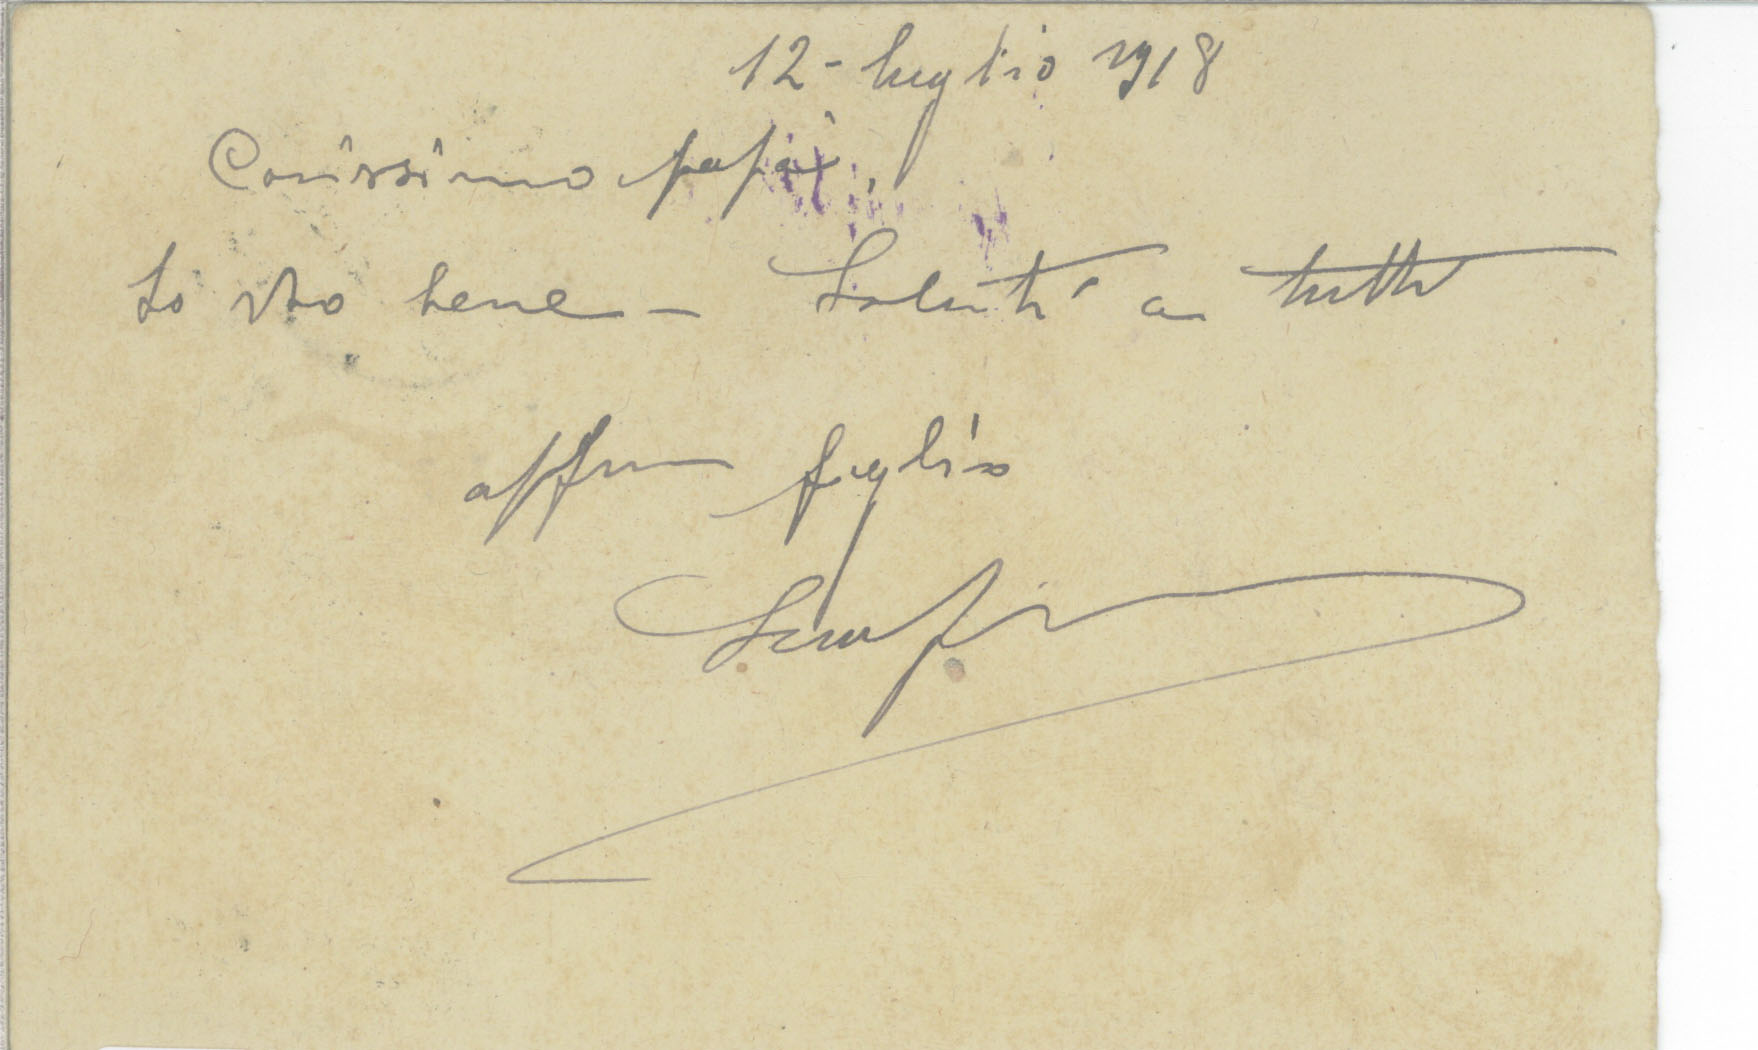 12 - luglio 1918
Carissimo papà,
Io sto bene - Saluti a tutti
affmo figlio